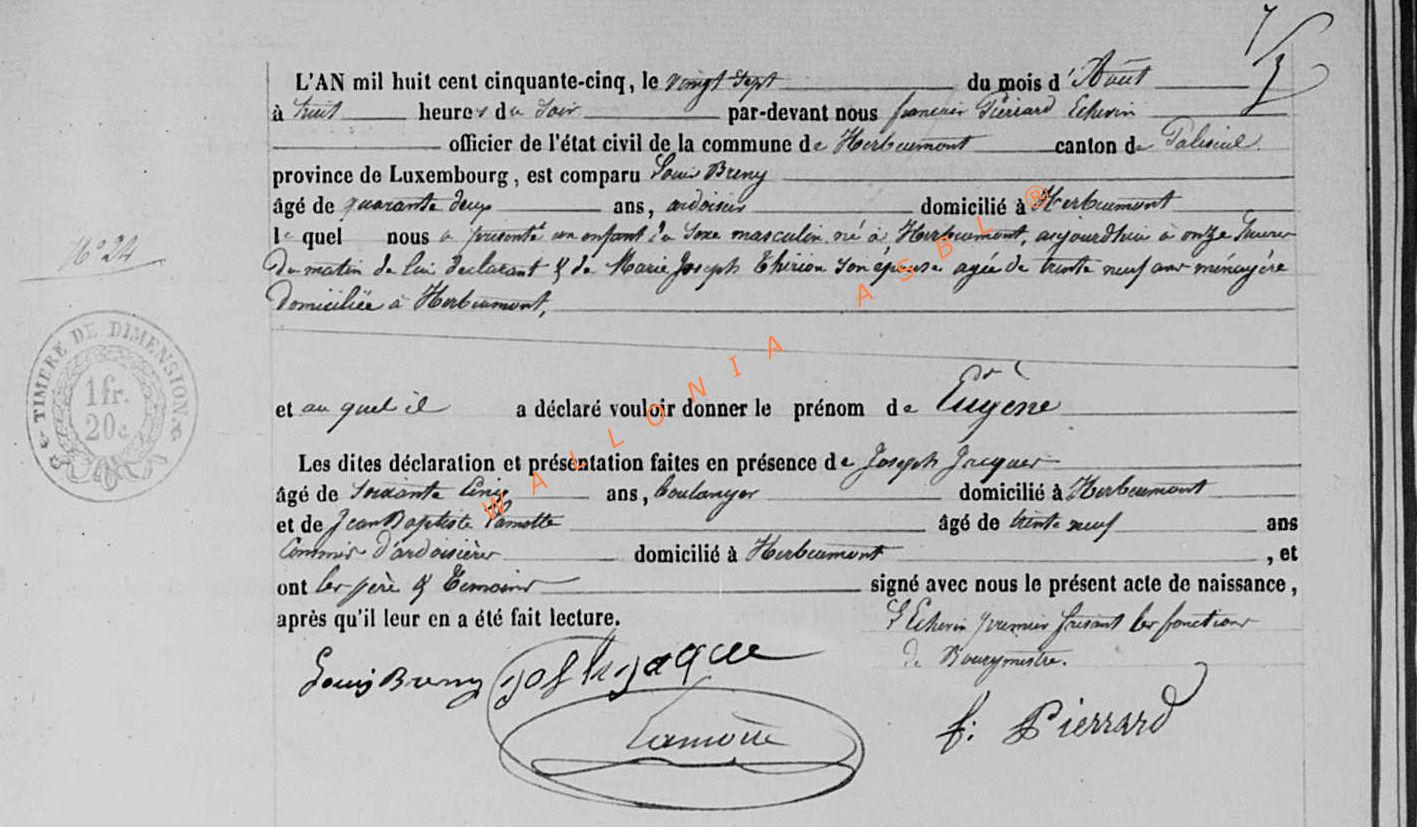 L'AN mil huit cent cinquante-cinq, le vingt sept du mois d'Août
à huit heures du soir par-devant nous françois Pierrard Echevin
officier de l'état civil de la commune de Herbeumont canton de Paliseul
province de Luxembourg, est comparu Louis Breny
âgé de quarante deux ans, ardoisier domicilié à Herbeumont
le quel nous a présenté un enfant du sexe masculin né à Herbeumont, aujourdhui à onze heures
Du matin de lui déclarant & de Marie Joseph Thirion son épouse agée de trente neuf ans ménagère
Domiciliée à Herbeumont,
N° 24
TIMBRE DE DIMENSION
1 fr.
20c
et au quel il a déclaré vouloir donner le prénom de Eugène
Les dites déclaration et présentation faites en présence de Joseph Jacques
âgé de soixante cinq ans, boulanger domicilié à Herbeumont
et de Jean Baptiste Lamotte âgé de trente neuf ans
Commis d'ardoisières domicilié à Herbeumont, et
ont les père & Témoins signé avec nous le présent acte de naissance,
après qu'il leur en a été fait lecture.
L'Echevin premier faisant les fonctions
de Bourgmestre.
Louis Breny
Lamotte
f: Pierrard
WALLONIA ASBL ®